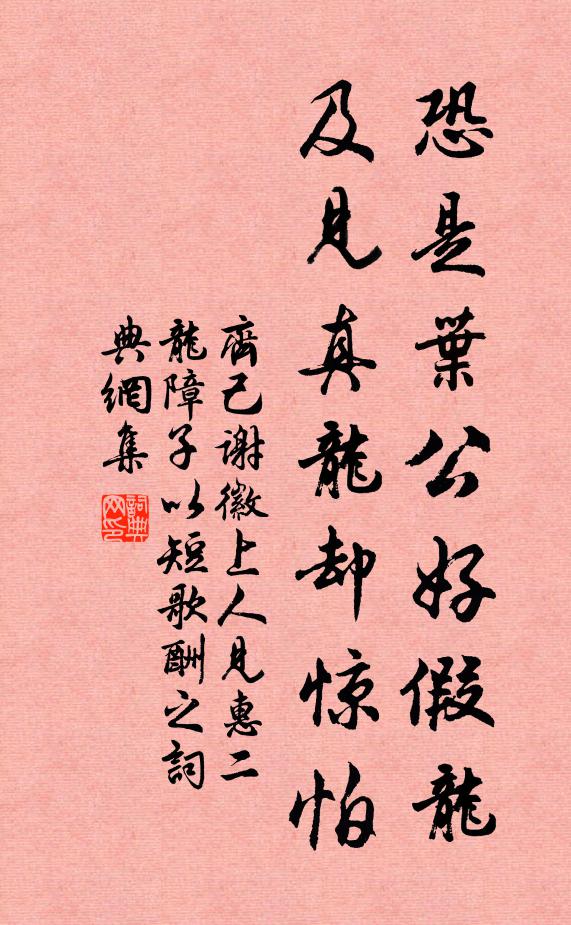 恐是葉公好假龍
及見真龍却惊怕
齊己謝徽上人見惠二
龍障子以短歌酬之詞
典網集
詞典
网印